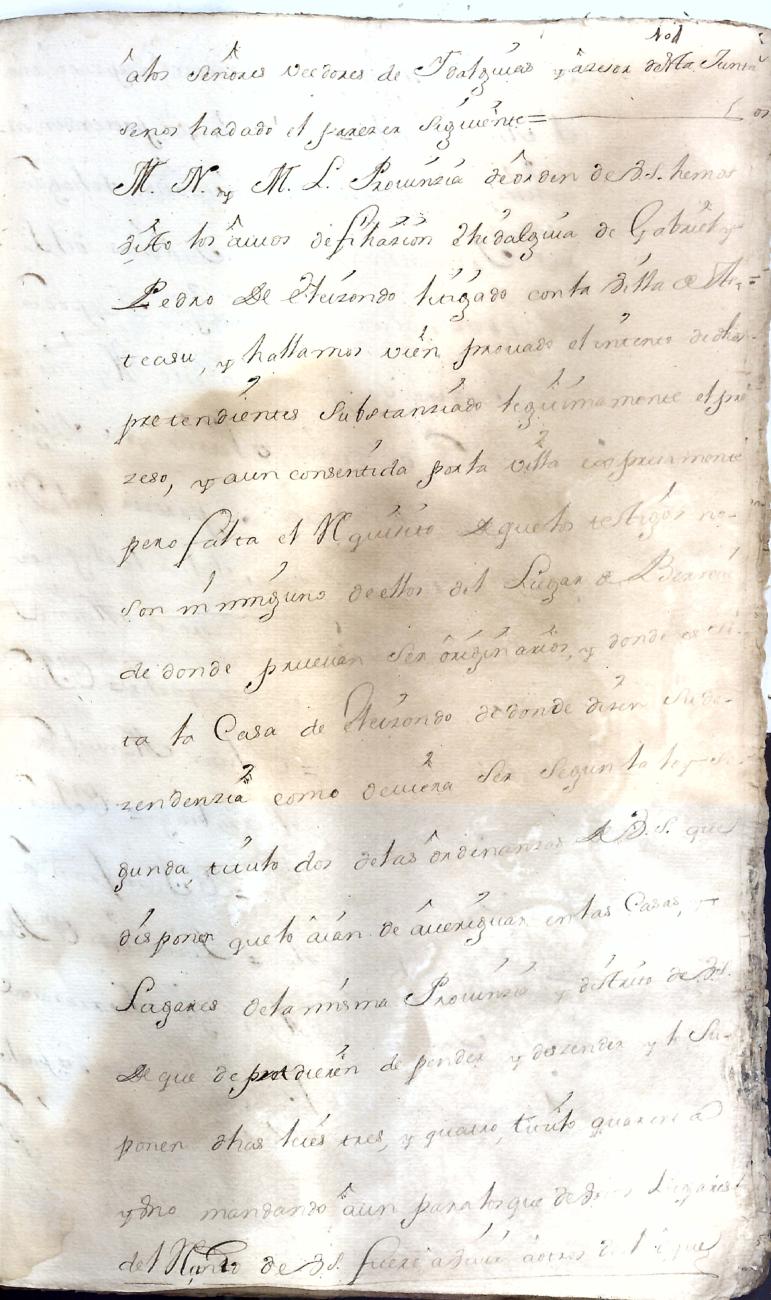 âlos señores veedores de Idalguias y âsesor desta Junta
senos hadado el parezer siguiente=
M. N. y M. L. Provinzia deôrden de V.S. hemos
visto los âutos defiliazion ehidalguia de Gabriel y
Pedro de Eleizondo litigado conla Villa de
teasu, y hallamos vien provado el intento dedhos
pretendientes substanziado legitimamente el pro
zeso, y aun consentida porla villa expresamente
pero falta el requisito de quelos testigos no
son ni ninguno deellos del Lugar de
de donde pruevan ser ôriginarios, y donde es si
ta la Casa de Eleizondo dedonde dizen su de
zendenzia como deviera ser segun la ley se
gunda, titulo dos delas ôrdinanzas de V.S. que
disponen quelo âian de âueriguar enlas Casas, y
Lugares delamisma Provinzia y distrito de V.S.
de que depender y dezender y lo su
ponen dhas leies tres, y quatro, titulo quarenta
y uno mandando âun paralosque de Lugares
del de V.S.